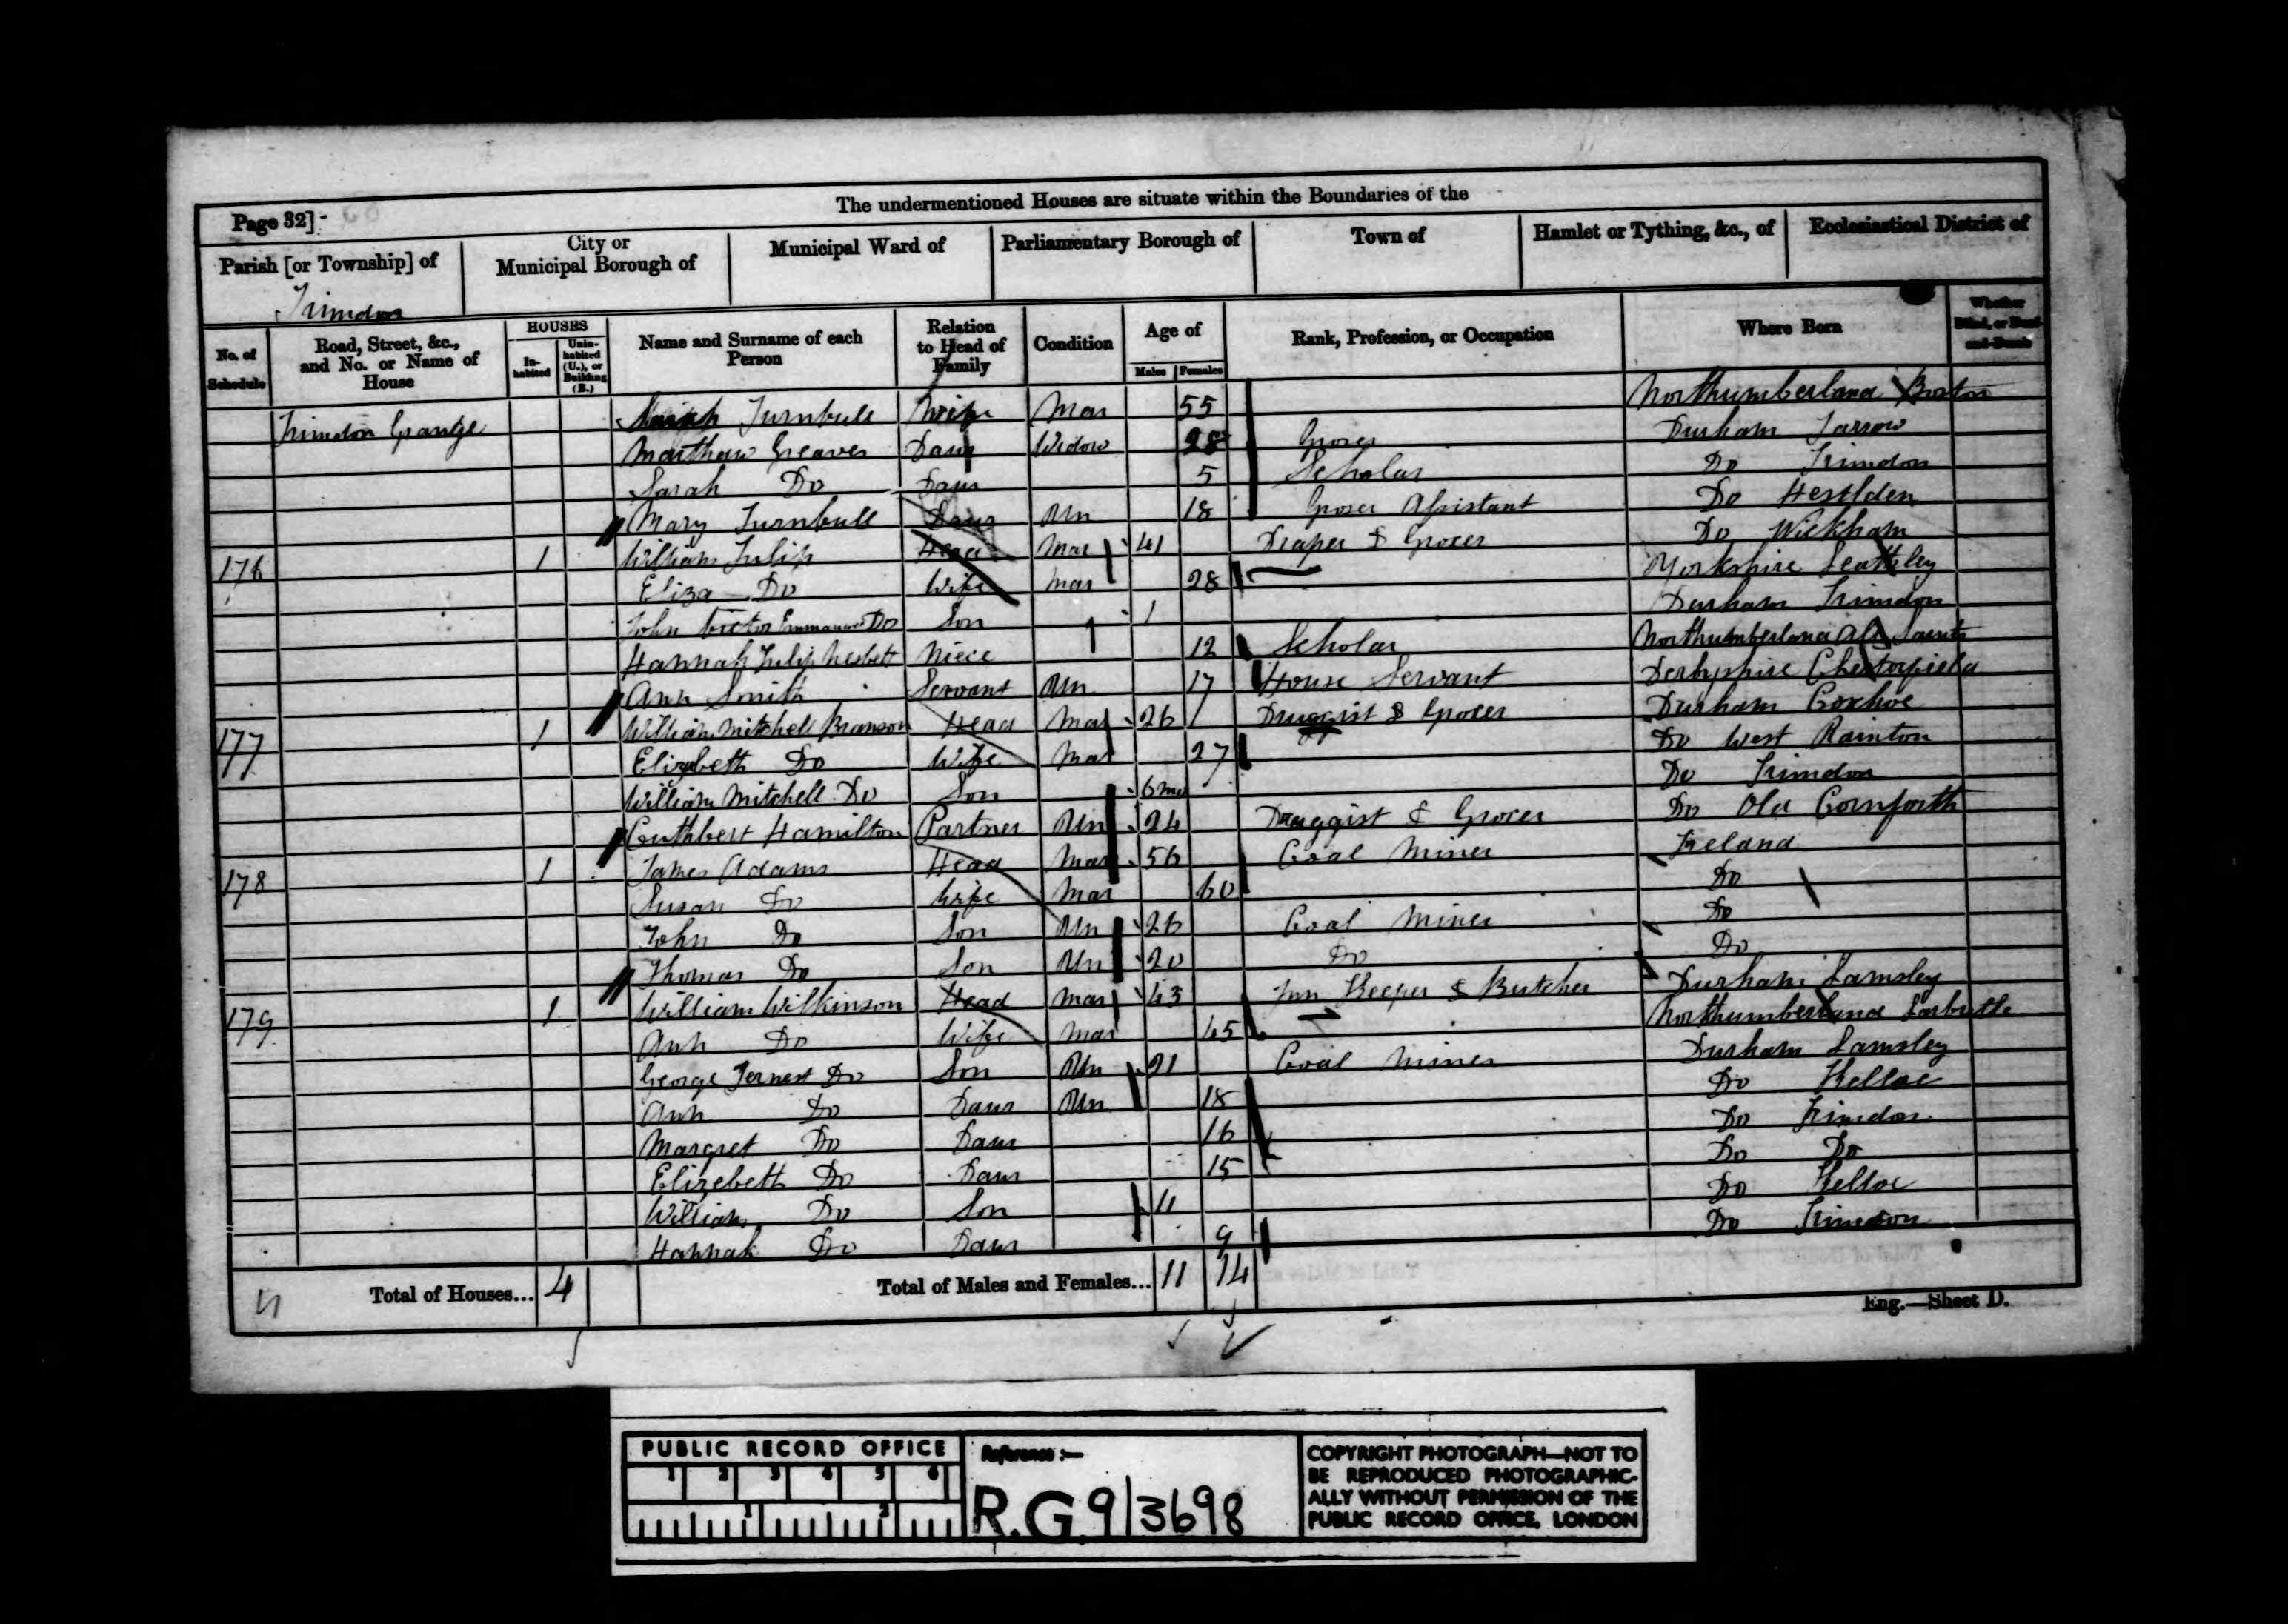 The undermentioned Houses are situate within the Boundaries of the
Page 32]
Parish [or Township] of
City or Municipal Borough of
Municipal Ward of
Parliamentary Borough of
Town of
Hamlet or Tything, &c., of
Ecclesiastical District of
Trimdon
No. of Schedule
Road, Street, &c., and No. or Name of House
HOUSES
In-habited
Unin-habited (U.), or Building (B.)
Name and Surname of each Person
Relation to Head of Family
Condition
Age of
Males
Females
Rank, Profession, or Occupation
Where Born
Whether Blind, or Deaf-and-Dumb
Trimdon Grange Sarah Turnbull Wife Mar 55 Northumberland
Greaves Daur Widow 28 Grocer Durham Jarrow
Sarah Do Daur 5 Scholar Do Trimdon
Mary Turnbull Daur Un 18 Grocer Assistant Do Heslden
176 1 William Julip Head Mar 41 Draper & Grocer Do Wickham
Eliza Do Wife Mar 28 Yorkshire
John Victor Emmanuel Do Son 1 Durham Trimdon
Hannah Julip Nesbett Niece 12 Scholar Northumberland All Saints
Ann Smith Servant Un 17 House Servant Derbyshire Chesterfield
177 1 William Mitchell Branson Head Mar 26 Druggist & Grocer Durham Coxhoe
Elizebeth Do Wife Mar 27 Do West Rainton
William Mitchell Do Son 6 mo Do Trimdon
Cuthbert Hamilton Partner Un 24 Druggist & Grocer Do Old Cornforth
178 1 James Adams Head Mar 56 Coal Miner Ireland
Susan Do Wife Mar 60 Do
John Do Son Un 26 Coal Miner Do
Thomas Do Son Un 20 Do Do
179 1 William Wilkinson Head Mar 43 Inn Keeper & Butcher Durham Lamsley
Ann Do Wife Mar 45 Northumberland
George Do Son Un 21 Coal Miner Durham Lamsley
Ann Do Daur Un 18 Do Kelloe
Margret Do Daur 16 Do Trimdon
Elizebeth Do Daur 15 Do Do
William Do Son 11 Do Kelloe
Hannah Do Daur 9 Do Trimdon
Total of Houses... 4 Total of Males and Females... 11 14
Eng.—Sheet D.
PUBLIC RECORD OFFICE
1 2 3 4 5 6
1 2
Reference :—
R.G. 9/3698
COPYRIGHT PHOTOGRAPH—NOT TO
BE REPRODUCED PHOTOGRAPHIC-
ALLY WITHOUT PERMISSION OF THE
PUBLIC RECORD OFFICE, LONDON